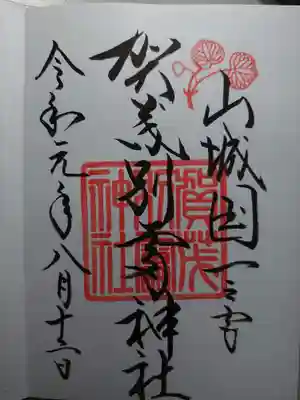 山城国一之宮
賀茂別雷神社
賀茂
別雷
神社
令和元年八月